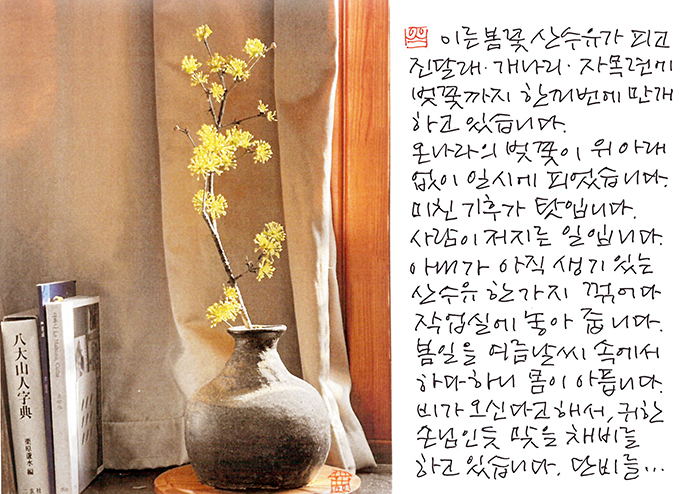 이른봄꽃 산수유가 피고
진달래·개나리·자목련에
벚꽃까지 한꺼번에 만개
하고 있습니다.
온나라의 벚꽃이 위 아래
없이 일시에 피었습니다.
미친 기후가 탓입니다.
사람이 저지른 일입니다.
아내가 아직 생기 있는
산수유 한가지 꺾어다
작업실에 놓아 줍니다.
봄일을 여름날씨 속에서
하다하니 몸이 아픕니다.
비가 오신다고 해서, 귀한
손님인듯 맞을 채비를
하고 있습니다. 단비를...
八大山人字典
栗原蘆水 編
二玄社